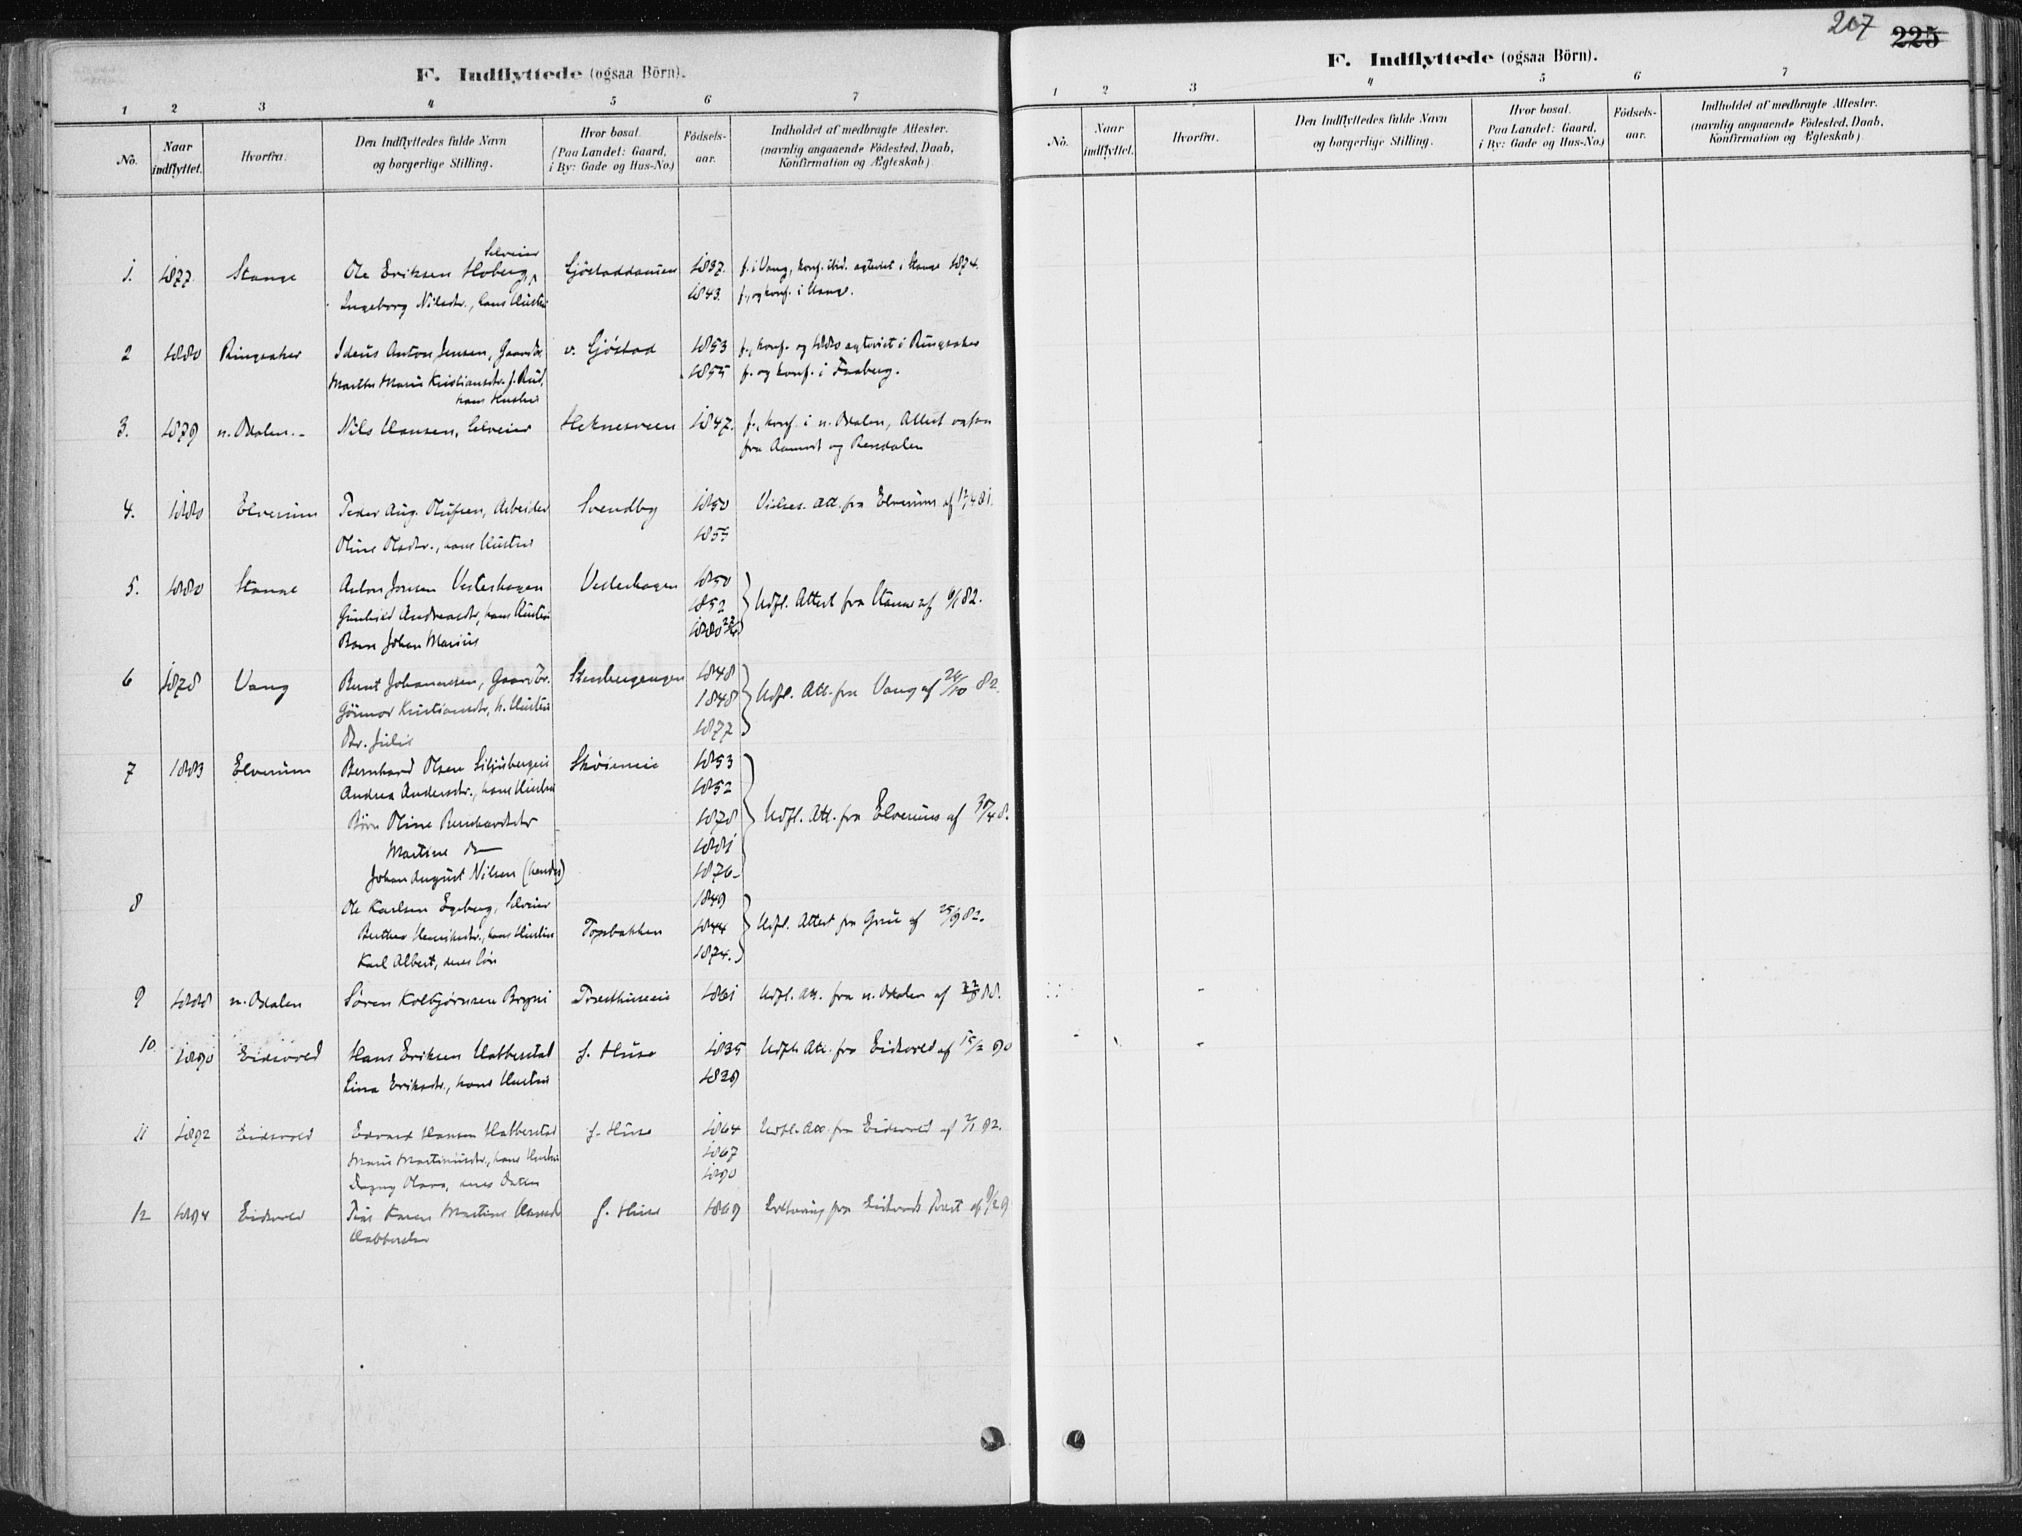 F. Indflyttede (ogsaa Börn).
1 2 3 4 5 6 7
No. Naar indflyttet. Hvorfra. Den Indflyttedes fulde Navn og borgerlige Stilling. Hvor bosat. (Paa Landet: Gaard, i By: Gade og Hus-No.) Födsels-aar. Indholdet af medbragte Attester. (navnlig angaaende Födested, Daab, Konfirmation og Ægteskab).
Selveier
1. 1877. Stange Ole Eriksen Hoberg, 1837. f. i Vang, konf. ibid. agtviet i Stange 1874.
Ingeborg Nilsdtr., hans Hustru 1843. f. og konf. i Stange.
2 1880 Ringsaker Anton Jensen, v. Gjöstad 1853 f., konf. og 1880 agtviet i Ringsaker
Kristiansdtr. f. Rud, 1855 f. og konf. i Faaberg.
hans Hustru
3. 1879 n. Odalen. Nils Hansen, Selveier 1847. f., konf. i n. Odalen, Attest
fra Aamodt og Rendalen
4. 1880 Elverum Peder Aug. Olufsen, Arbeider Svendby 1850 Vielses. Att. fra Elverum af
Oline Olsdtr., hans Hustru 1855
5. 1880 Stange Anton Jensen Vesterhagen Vesterhagen 1850
Andreasdtr., hans Hustru 1852 Udfl. Attest fra Stange af 82.
Barn Johan Marius 1880
6 1878 Vang Bernt Johannesen, Gaardbr. 1848
Kristiansdtr., h. Hustru 1848 Udfl. Att. fra Vang af 24/10 82.
Br. Julie 1877
7 1883 Elverum Bernhard Olsen 1853
Andrea Andersdtr., hans Hustru 1852
Börn Oline Bernhardsdtr 1878 Udfl. Att. fra Elverum af
Martine do 1881
Johan August Nilsen (hendes) 1876
8 Ole Karlsen Egeberg, Selveier 1849
Berthea hans Hustru Topbakken 1844 Udfl. Attest fra Grue af 25/9 82.
Karl Albert, deres Sön 1874.
9 1888 n. Odalen Sören Kolbjörnsen 1861 Udfl. Att. fra n. Odalen af 88.
10. 1890 Eidsvold Hans Eriksen Habberstad f. Huse 1835 Udfl. Att. fra Eidsvold af 15/2 90
Eriksdtr., hans Hustru 1829
11 1892 Eidsvold Edvard Hansen Habberstad f. Huse 1864 Udfl. Att. fra Eidsvold af 2/1 92.
hans Hustru 1867
Dagny Olava, deres Datter 1890
12 1894 Eidsvold Pige Karen Martine f. Huse 1869 fra Eidsvolds af
Habberstad
207
225
F. Indflyttede (ogsaa Börn).
1 2 3 4 5 6 7
No. Naar indflyttet. Hvorfra. Den Indflyttedes fulde Navn og borgerlige Stilling. Hvor bosat. Paa Landet: Gaard, i By: Gade og Hus-No.) Födsels-aar. Indholdet af medbragte Attester. (navnlig angaaende Födested, Daab, Konfirmation og Ægteskab).